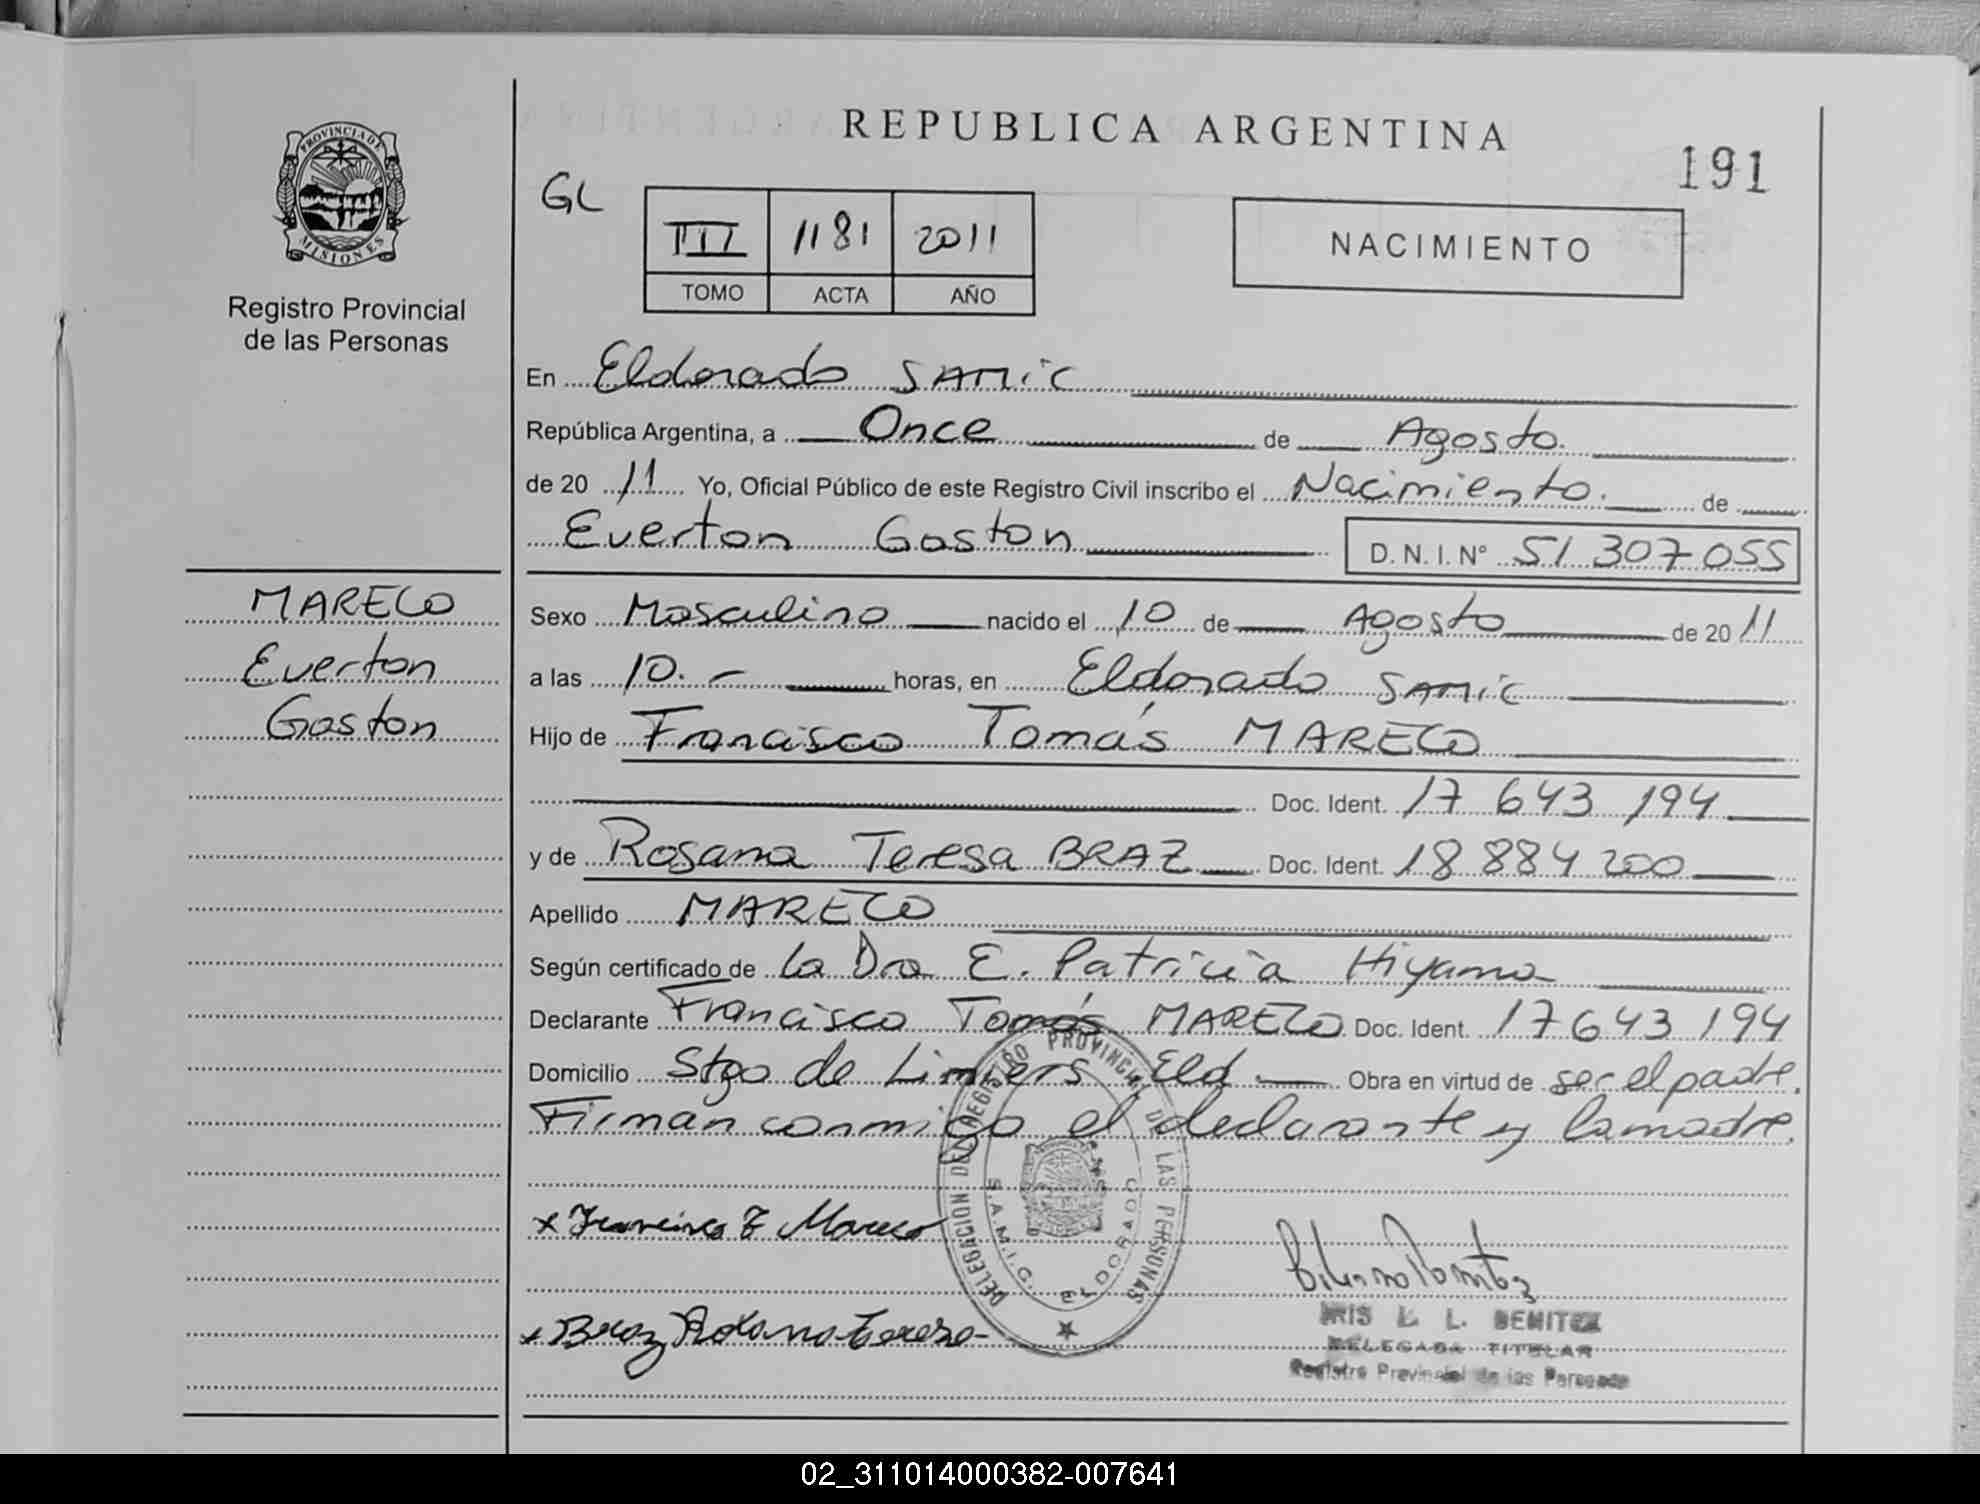 REPUBLICA ARGENTINA
191
PROVINCIA DE
MISIONES
Registro Provincial
de las Personas
GL
III 1181 2011
TOMO ACTA AÑO
NACIMIENTO
En Eldorado SAMiC
República Argentina, a Once de Agosto.
de 20 11 Yo, Oficial Público de este Registro Civil inscribo el Nacimiento. de
Everton Gaston D.N.I. Nº 51 307 055
MARECO
Everton
Gaston
Sexo Masculino nacido el 10 de Agosto de 20 11
a las 10.- horas, en Eldorado SAMiC
Hijo de Francisco Tomás MARECO
Doc. Ident. 17 643 194
y de Rosana Teresa BRAZ Doc. Ident. 18 884 200
Apellido MARECO
Según certificado de la Dra E. Patricia Hiyama
Declarante Francisco Tomás MARECO Doc. Ident. 17 643 194
Domicilio Stgo de Liniers Eld Obra en virtud de ser el padre.
Firman conmigo el declarante y la madre.
DELEGACION DEL REGISTRO PROVINCIAL DE LAS PERSONAS
S.A.M.I.C. ELDORADO
x Francisco T Mareco
x Braz Rosana Teresa
IRIS L. L. BENITEZ
DELEGADA TITULAR
Registro Provincial de las Personas
02_311014000382-007641